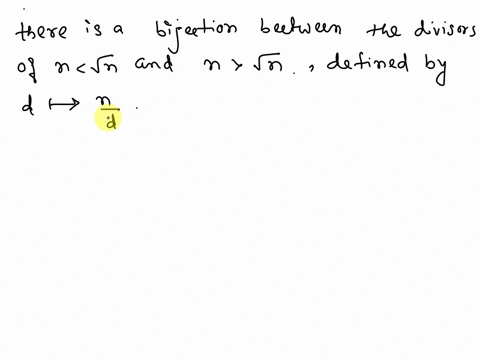 there is a bijection beetween the divisors
of n < √n and n > √n , defined by
d ⟼ n/d .